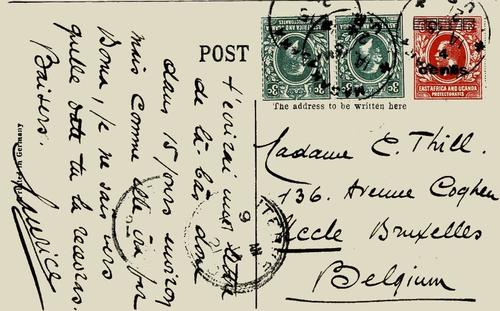 POST
The address to be written here
EAST AFRICA AND UGANDA
PROTECTORATES
4 cents
Printed in Germany
t'écrirai une lettre
de là-bas donc
dans 15 jours environ
mais comme elle ira par
Boma, je ne sais vers
quelle date tu la recevras.
Baisers.
Madame C. Thill.
136. Avenue Coghen
Uccle Bruxelles
Belgium